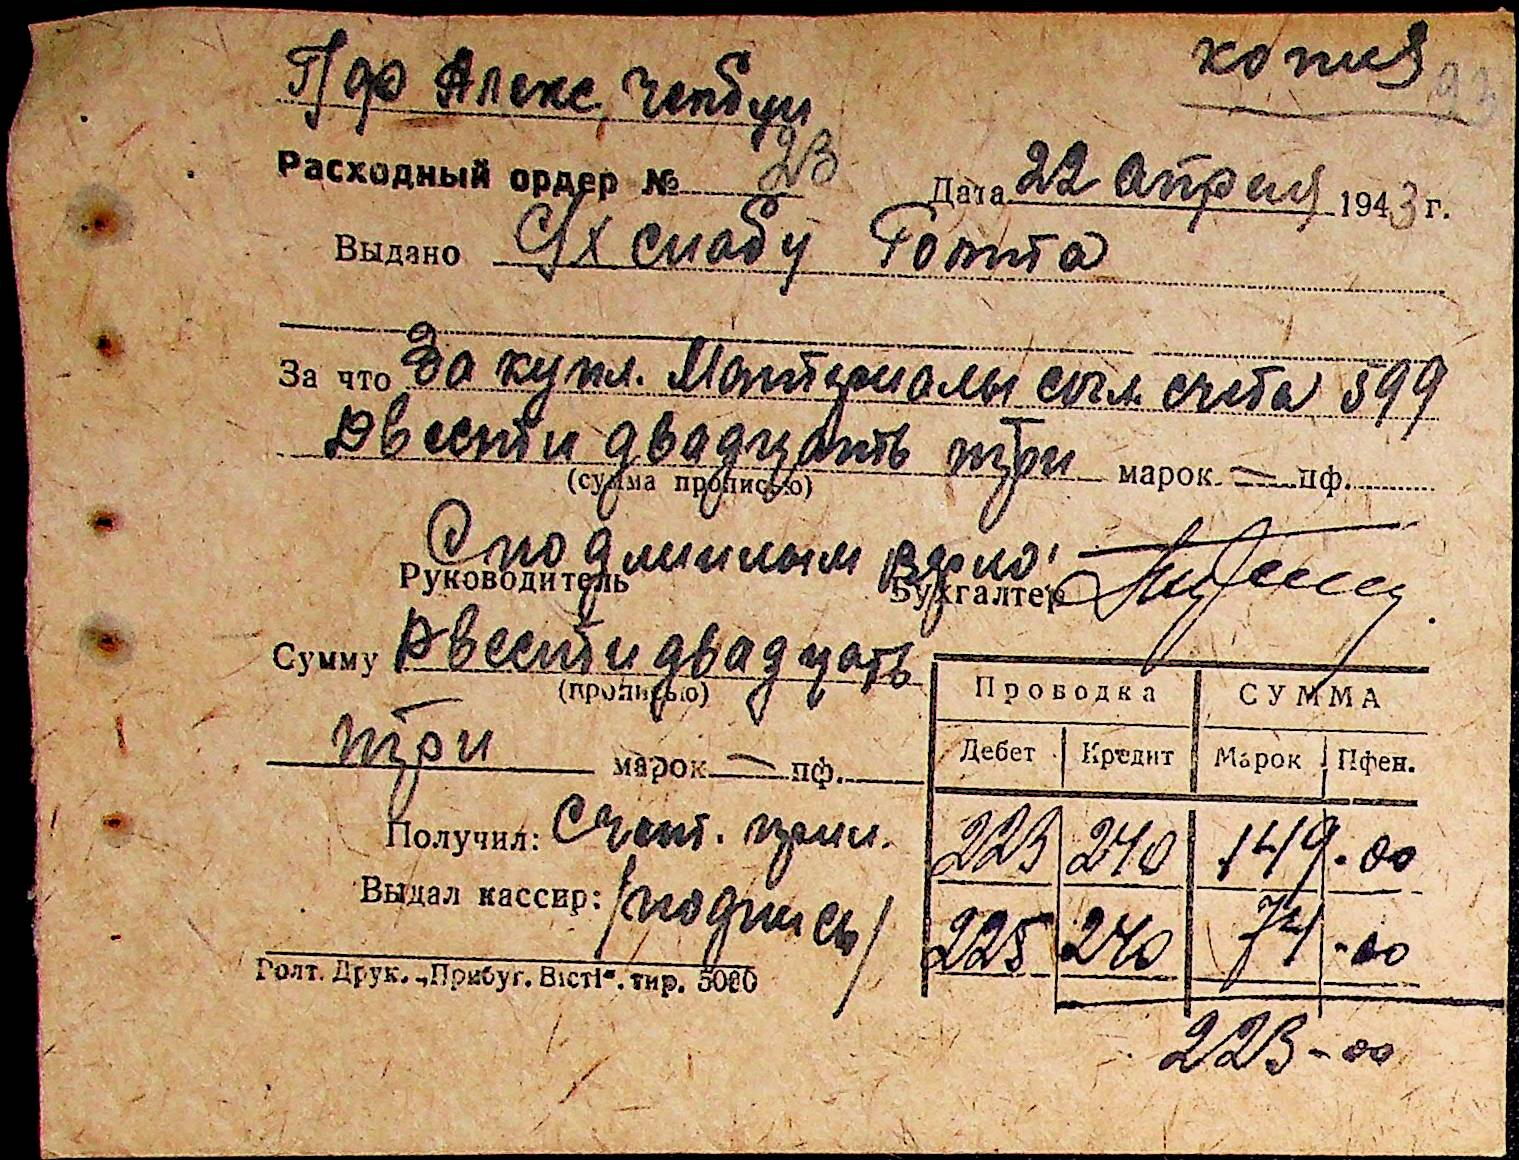 копия
93
Пдр Алекс.
Расходный ордер № 23 Дата 22 апреля 1943 г.
Выдано С/х снабу Голта
За что За купл. Материалы согл. счета 599
Двести двадцать три марок — пф.
(сумма прописью)
С подлинным верно:
Руководитель Бухгалтер
Сумму Двести двадцать
(прописью)
три марок — пф.
Получил: Счет. прил.
Выдал кассир: /подпись/
Проводка СУММА
Дебет Кредит Марок Пфен.
223 240 149 - 00
225 240 74 - 00
223 - 00
Голт. Друк. „Прибуг. Вісті“. тир. 5000